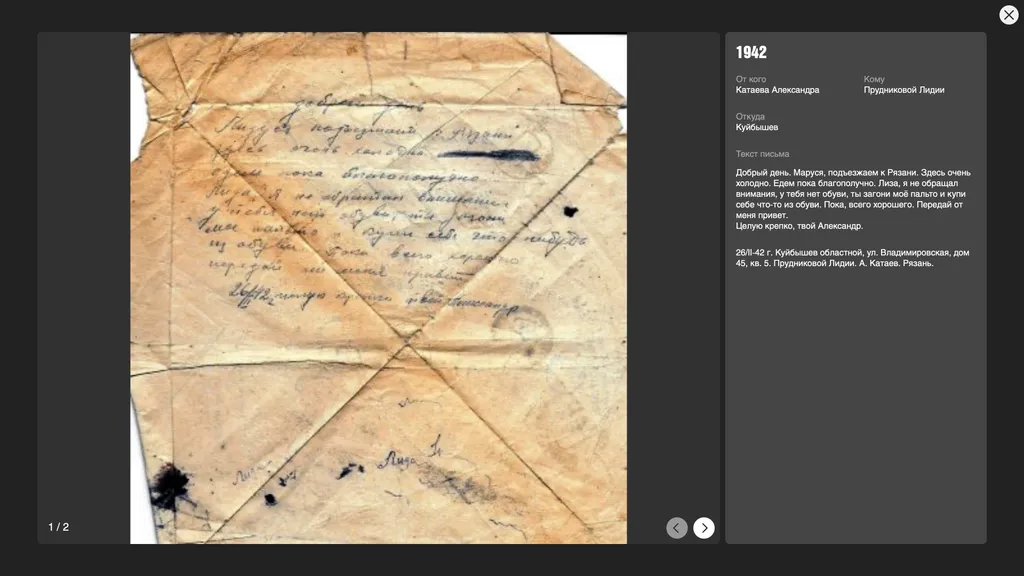 1942
От кого
Катаева Александра
Кому
Прудниковой Лидии
Откуда
Куйбышев
Текст письма
Добрый день. Маруся, подъезжаем к Рязани. Здесь очень
холодно. Едем пока благополучно. Лиза, я не обращал
внимания, у тебя нет обуви, ты загони моё пальто и купи
себе что-то из обуви. Пока, всего хорошего. Передай от
меня привет.
Целую крепко, твой Александр.
26/II-42 г. Куйбышев областной, ул. Владимировская, дом
45, кв. 5. Прудниковой Лидии. А. Катаев. Рязань.
добрый день
Лидуся подъезжаем к Рязани
здесь очень холодно
едем пока благополучно
Лида я не обратил внимания,
у тебя нет обуви ты загони
мое пальто и купи себе что нибудь
из обуви пока всего хорошего
передай от меня привет
26/II 42 целую крепко твой Александр
Лида
1 / 2